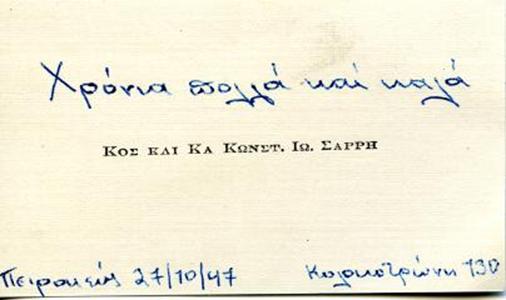 Χρόνια πολλά καί καλά
ΚΟΣ ΚΑΙ ΚΑ ΚΩΝΣΤ. ΙΩ. ΣΑΡΡΗ
Πειραιεύς 27/10/47 Κολοκοτρώνη 130